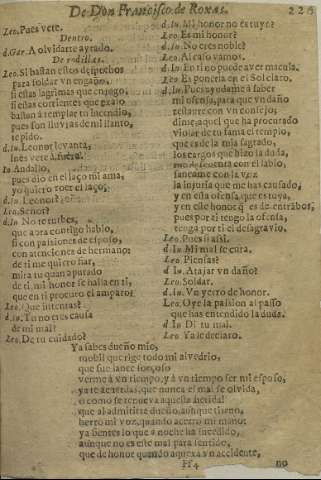 De Don Francisco de Roxas. 226
Leo. Pues vete.
Dentro.
d. Gar. A olvidarte ayrado.
De rodillas.
Leo. Si bastan estos despechos
para soldar vn engaño,
si estas lagrimas que enjugo,
si estas corrientes que
bastan à templar tu incendio,
pues son lluvias de mi llanto,
te pido.
d. Iu. Leonor levanta,
Ines vete à fuera.
In. Andallo,
pues diò en el laço mi ama,
yo quiero roer el laço.
d. Iu. Leonor?
Leo. Señor?
d. Iu. No te turbes,
que aora contigo hablo,
si con passiones de esposo,
con atenciones de hermano:
de ti me quiero fiar,
mira tu quan apurado
de ti, mi honor se halla en ti,
que en ti procuro el amparo.
Leo. Que intentas?
d. Iu. Tu no eres causa
de mi mal?
Leo. De tu cuidado?
d. Iu. Mi honor no es tuyo?
Leo. Es mi honor?
d. Iu. No eres noble?
Leo. Al caso vamos.
d. Iu. En ti no puede aver macula.
Leo. Es ponerla en el Sol claro.
d. Iu. Pues ayudame à saber
mi ofensa, para que vn daño
restaure con vn consejo;
dime, aquel que ha procurado
violar de tu fama el templo,
que es de la mia sagrado,
los cargos que hizo la duda,
con el labio,
saneame con la voz
la injuria que me has causado,
y en esta ofensa, que es tuya,
y en este honor, que es de entrãbos,
pues por ti tengo la ofensa,
tenga por ti el desagravio.
Leo. Pues si assi.
d. Iu. Mi mal se cura.
Leo. Piensas?
d. Iu. Atajar vn daño?
Leo. Soldar.
d. Iu. Vn yerro de honor.
Leo. Oye la passion al passo
que has entendido la duda.
d. Iu. Di tu mal.
Leo. Ya le declaro.
Ya sabes dueño mio,
mobil que rige todo mi alvedrio,
que fue lance forçoso
verme à vn tiempo, y à vn tiempo ser mi esposo,
ya te acuerdas, que nunca el mal se olvida,
o como se renueva aquesta herida!
que al admitirte dueño, aunque tierno,
herrò mi voz, quando acertò mi mano:
ya sientes lo que à noche ha sucedido,
aunque no es este mal para sentido,
que de honor quando aquexa vn accidente,
Ff4 no